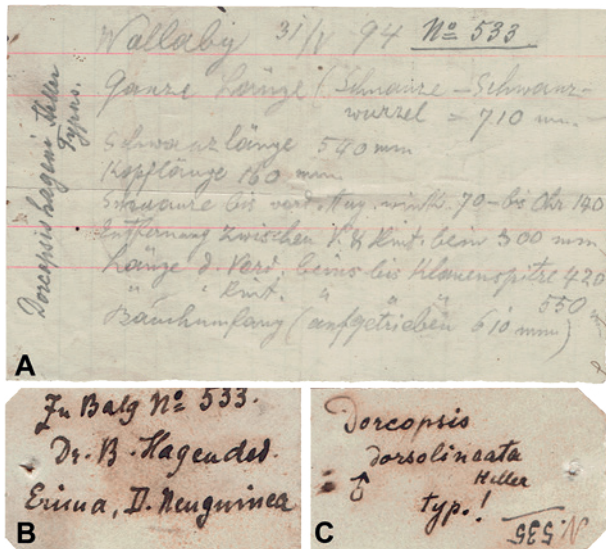 Wallaby 31/V 94 Nº 533
Ganze Länge (Schnauze – Schwanz-
wurzel = 710 mm.
Schwanzlänge 540 mm
Kopflänge 160 mm.
Schnauze bis vord. Aug. wink. 70 – bis Ohr 140
Entfernung zwischen V. & Hint. bein 300 mm
Länge d. Vord. beins bis Klauenspitze 420
" " Hint. " " " 550
Bauchumfang (aufgetrieben 610 mm)
Dorcopsis hageni Heller
Typus.
A
Zu Balg Nº 533.
Dr. B. Hagen ded.
Erima, D. Neuguinea
B
Dorcopsis
dorsolineata
Heller
♂ typ.!
N. 535
C